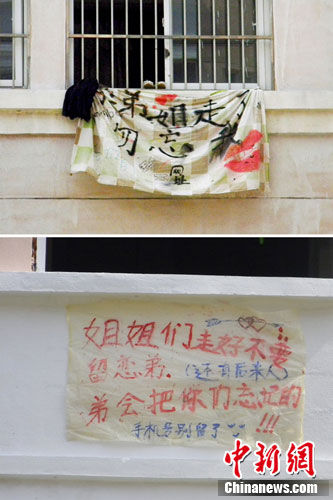 弟 姐走
勿忘我
网址
姐姐们走好不要
留恋弟.(还有后来人)
弟会把你们忘记的
手机号别留了 !!!
中新网
Chinanews.com